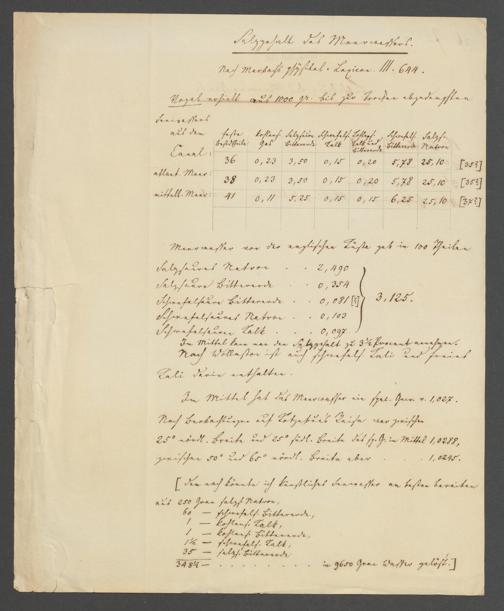 Salzgehalt des Meerwassers.
Nach Marbachs physikal. Lexicon III. 644.
Vogel erhielt aus 1000 gr. bis zur Trockne abgedampften
Seewassers
aus dem feste Kohlens. Salzsaure Schwefels. Schwefels. Salzs.
Bestdtheile Gas Bittererde Kalk Bittererde Natron
Canal: 36 0,23 3,50 0,15 0,20 5,78 25,10 [35?]
atlant. Meer: 38 0,23 3,50 0,15 0,20 5,78 25,10 [35?]
mittell. Meer: 41 0,11 5,25 0,15 0,15 6,25 25,10 [37?]
Meerwasser von der englischen Küste gab in 100 Theilen
Salzsaures Natron . . 2,490
Salzsaure Bittererde . . 0,354
Schwefelsaure Bittererde . . 0,081 [?] 3,125.
Schwefelsaures Natron . . 0,103
Schwefelsauren Kalk . . 0,097
Im Mittel kann man den Salzgehalt zu 3½ Procent annehmen.
Nach Wollaston ist auch schwefels. Kali und freies
Kali darin enthalten.
Im Mittel hat das Meerwasser ein spez. Gew. v. 1,027.
Nach Beobachtungen auf Kotzebue's Reise war zwischen
25° nördl. Breite und 25° südl. Breite das sp. G. im Mittel 1,0288,
zwischen 50° und 65° nördl. Breite aber . . 1,0245.
[Demnach könnte ich künstliches Seewasser am besten bereiten
aus 250 Gran salzs. Natron,
60 — schwefels. Bittererde,
1 — kohlens. Kalk,
1 — kohlens. Bittererde
1½ — schwefels. Kalk,
35 — salzs. Bittererde
348½ — . . . . . . . in 9650 Gran Wasser gelöst.]